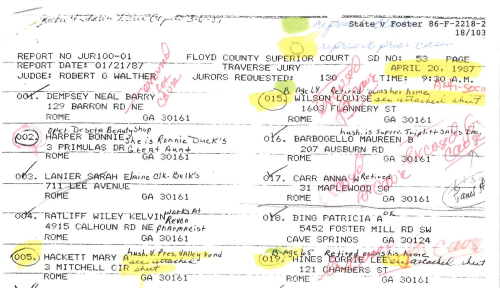 State v Foster 86-F-2218-2
18/103
REPORT NO JUR100-01 FLOYD COUNTY SUPERIOR COURT SD NO: 53 PAGE
REPORT DATE: 01/21/87 TRAVERSE JURY APRIL 20, 1987
JUDGE: ROBERT G WALTHER JURORS REQUESTED: 130 TIME: 9:30 A.M.
001. DEMPSEY NEAL BARRY
129 BARRON RD NE
ROME GA 30161
oper. Desoto Beauty Shop
002. HARPER BONNIE J She is Ronnie Duck's
3 PRIMULAS DR Great Aunt
ROME GA 30161
003. LANIER SARAH ELaine Clk-BKIK's
711 LEE AVENUE
ROME GA 30161
004. RATLIFF WILEY KELVIN works At
4915 CALHOUN RD NE Pharmacist
ROME GA 30161
005. HACKETT MARY A hush. V. Pres. Valley Vend
3 MITCHELL CIR see attached sheet
ROME GA 30161
B Age 64 Retired owns home
015. WILSON LOUISE see attached sheet
1603 FLANNERY ST
ROME GA 30161
hush. is Superv.
016. BARBOGELLO MAUREEN B
207 AUSBURN RD
ROME GA 30161
017. CARR ANNA W Retired
31 MAPLEWOOD SQ
ROME GA 30161
018. DING PATRICIA A OK
5452 FOSTER MILL RD SW
CAVE SPRINGS GA 30124
B-Age 65 Retired owns his home
019. HINES CORRIE LEE see attached sheet
121 CHAMBERS ST
ROME GA 30161